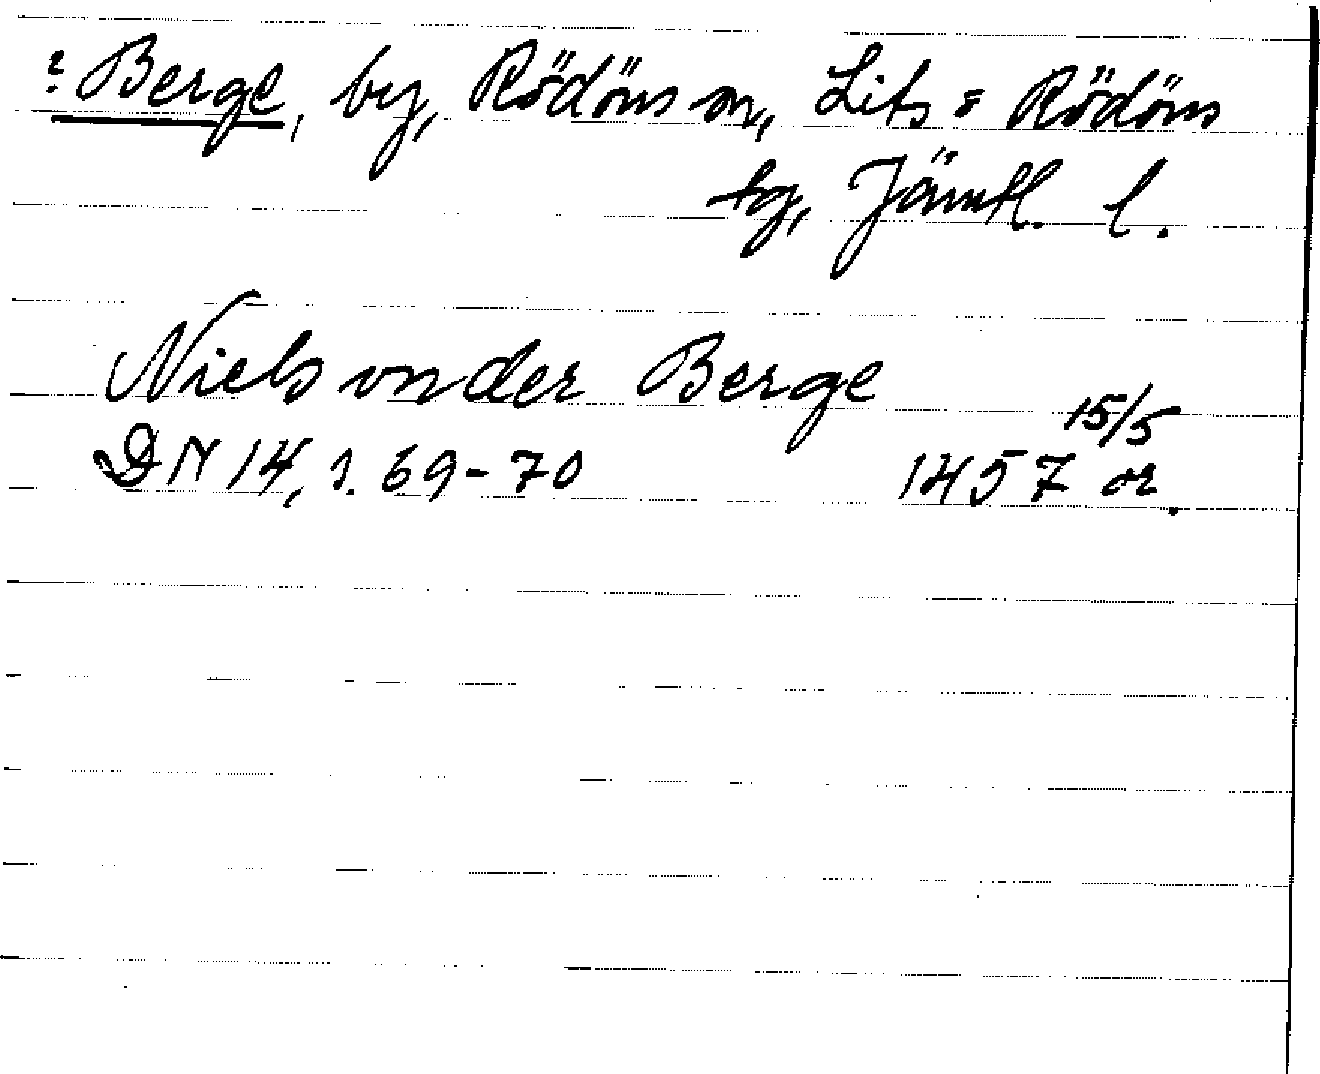 ? Berge, by, Rödöns sn, Lits o Rödöns
tg, Jämtl. l.
Niels vnder Berge
15/5
DN 14, s. 69-70 1457 or.